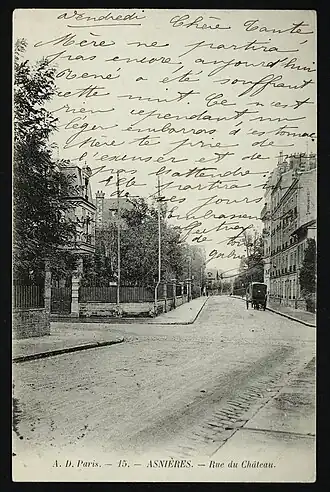 Vendredi Chère Tante
Mère ne partira
pas encore, aujourd'hui
René a été souffrant
cette nuit. Ce n'est
rien cependant un
léger embarras d'estomac
Mère te prie de
l'excuser et de
pas l'attendre
partira
ces jours
embrassons
A. D. Paris. - 15. - ASNIÈRES. - Rue du Château.